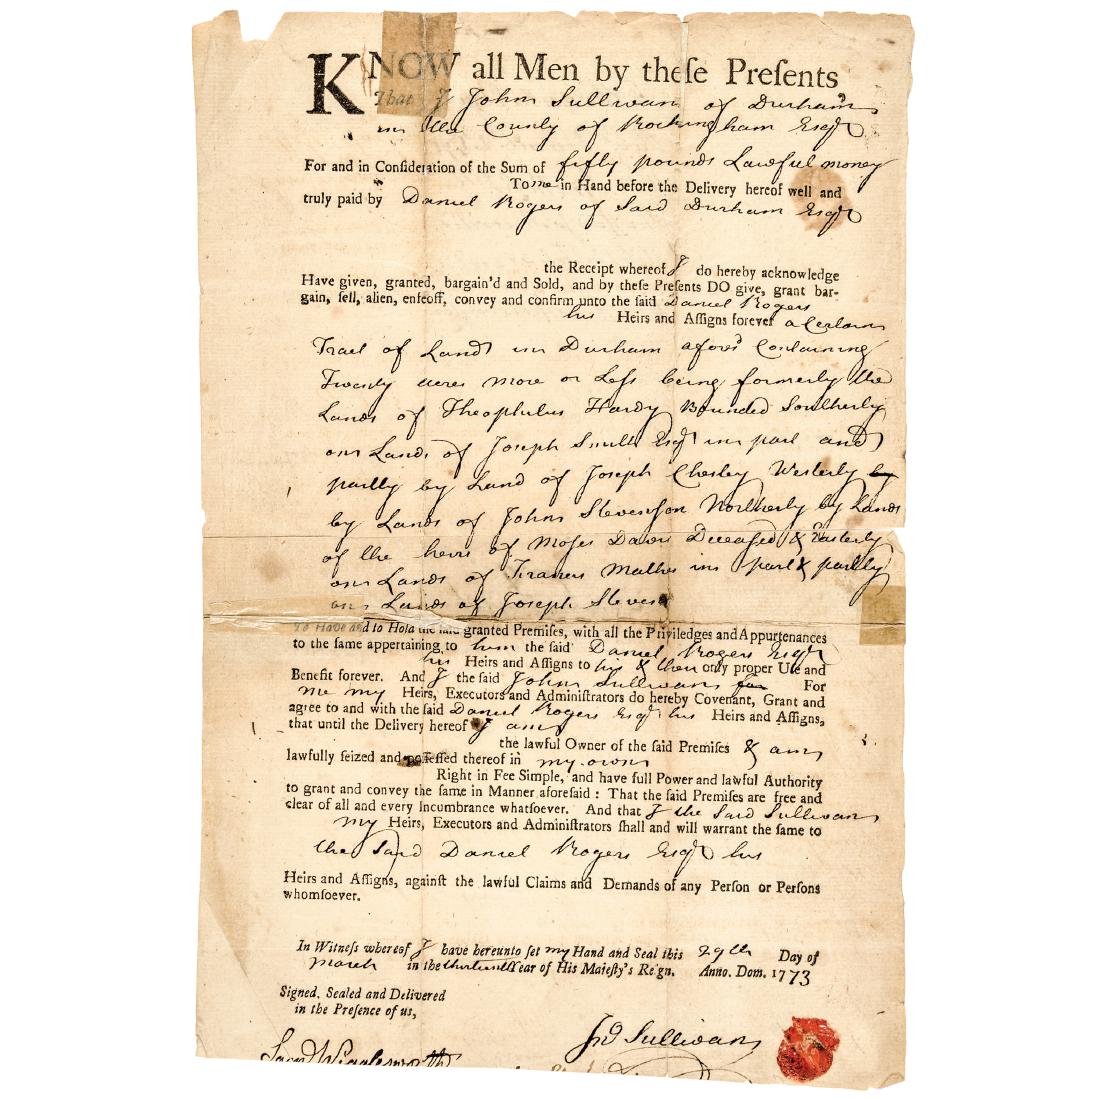 KNOW all Men by theſe Preſents
That I John Sullivan of Durham
in the County of Rockingham Esqr
For and in Conſideration of the Sum of fifty pounds Lawful money
To me in Hand before the Delivery hereof well and
truly paid by Daniel Rogers of Said Durham Esqr
the Receipt whereof I do hereby acknowledge
Have given, granted, bargain'd and Sold, and by theſe Preſents DO give, grant bar-
gain, ſell, alien, enfeoff, convey and confirm unto the ſaid Daniel Rogers
his Heirs and Aſſigns forever a Certain
Tract of Land in Durham afores'd Containing
Twenty acres more or Less being formerly the
Lands of Theophilus Hardy Bounded Southerly
on Lands of Joseph Smith Esqr in part and
partly by Land of Joseph Chesley Westerly by
by Lands of John Stevenson Northerly by Lands
of the heirs of Moses Davis Deceased & Easterly
on Lands of Francis Mathes in part & partly
on Lands of Joseph Stevens
To Have and to Hold the ſaid granted Premiſes, with all the Priviledges and Appurtenances
to the ſame appertaining to him the ſaid Daniel Rogers Esqr
his Heirs and Aſſigns to his & their only proper Uſe and
Benefit forever. And I the ſaid John Sullivan for For
me my Heirs, Executors and Adminiſtrators do hereby Covenant, Grant and
agree to and with the ſaid Daniel Rogers Esqr his Heirs and Aſſigns,
that until the Delivery hereof I am
the lawful Owner of the ſaid Premiſes & am
lawfully ſeized and poſſeſſed thereof in my own
Right in Fee Simple, and have full Power and lawful Authority
to grant and convey the ſame in Manner aforeſaid: That the ſaid Premiſes are free and
clear of all and every Incumbrance whatſoever. And that I the Said Sullivan
my Heirs, Executors and Adminiſtrators ſhall and will warrant the ſame to
the Said Daniel Rogers Esqr his
Heirs and Aſſigns, againſt the lawful Claims and Demands of any Perſon or Perſons
whomſoever.
In Witneſs whereof I have hereunto ſet my Hand and Seal this 29th Day of
March in the thirteenth Year of His Majeſty's Reign. Anno. Dom. 1773
Signed, Sealed and Delivered
in the Preſence of us,
Jno Sullivan
Saml Wigglesworth